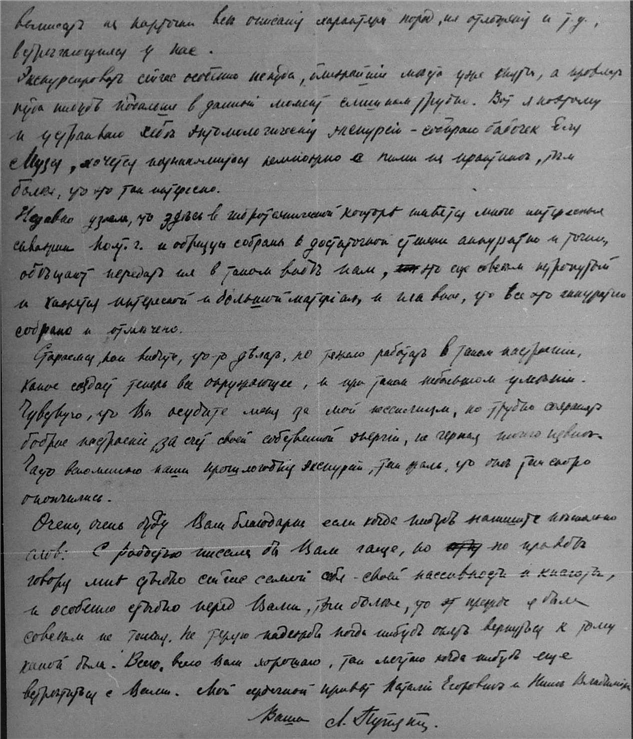 выписать на карточки все описания характера пород, их отложения и т.д.,
встречающихся у нас.
Экскурсировать сейчас особенно некуда, ближайшие места уже, а проехать
куда нибудь подальше в данный момент слишком трудно. Вот я поэтому
и устраиваю себе энтомологическия экскурсии - собираю бабочек для
Музея, хочется познакомиться немножко с ними на практике, тем
более, что это так интересно.
Недавно узнала, что здесь в гидротехнической конторе имеется много интересных
скважин Полт. г. и образцы собраны в достаточной степени аккуратно и точно,
обещают передать их в таком виде нам, это их совсем
и кажется интересной и большой матерiал, и главное, что все это аккуратно
собрано и отмечено.
Стараемся, как видите, что-то делать, но тяжело работать в таком настроении,
какое создает теперь все окружающее, и при таком небольшом умении.
Чувствую, что Вы осудите меня за мой пессимизм, но трудно сохранить
бодрое настроение, за счет своей собственной энергии, не черпая ничего извне.
Часто вспоминаю наши прошлогодния экскурсии, так жаль, что они так скоро
окончились.
Очень, очень буду Вам благодарна если когда нибудь напишите несколько
слов. С радостью писала бы Вам чаще, но но правде
говоря мне стыдно сейчас самой себя - своей пассивности и кислоты,
и особенно стыдно перед Вами, тем более, что прежде я была
совсем не такая. Не теряю надежды когда нибудь опять вернуться к тому
какой была. Всего, всего Вам хорошаго, так мечтаю когда нибудь еще
встретиться с Вами. Мой сердечный привет Наталiи Егоровне и Нине Владимiр
Ваша Л.